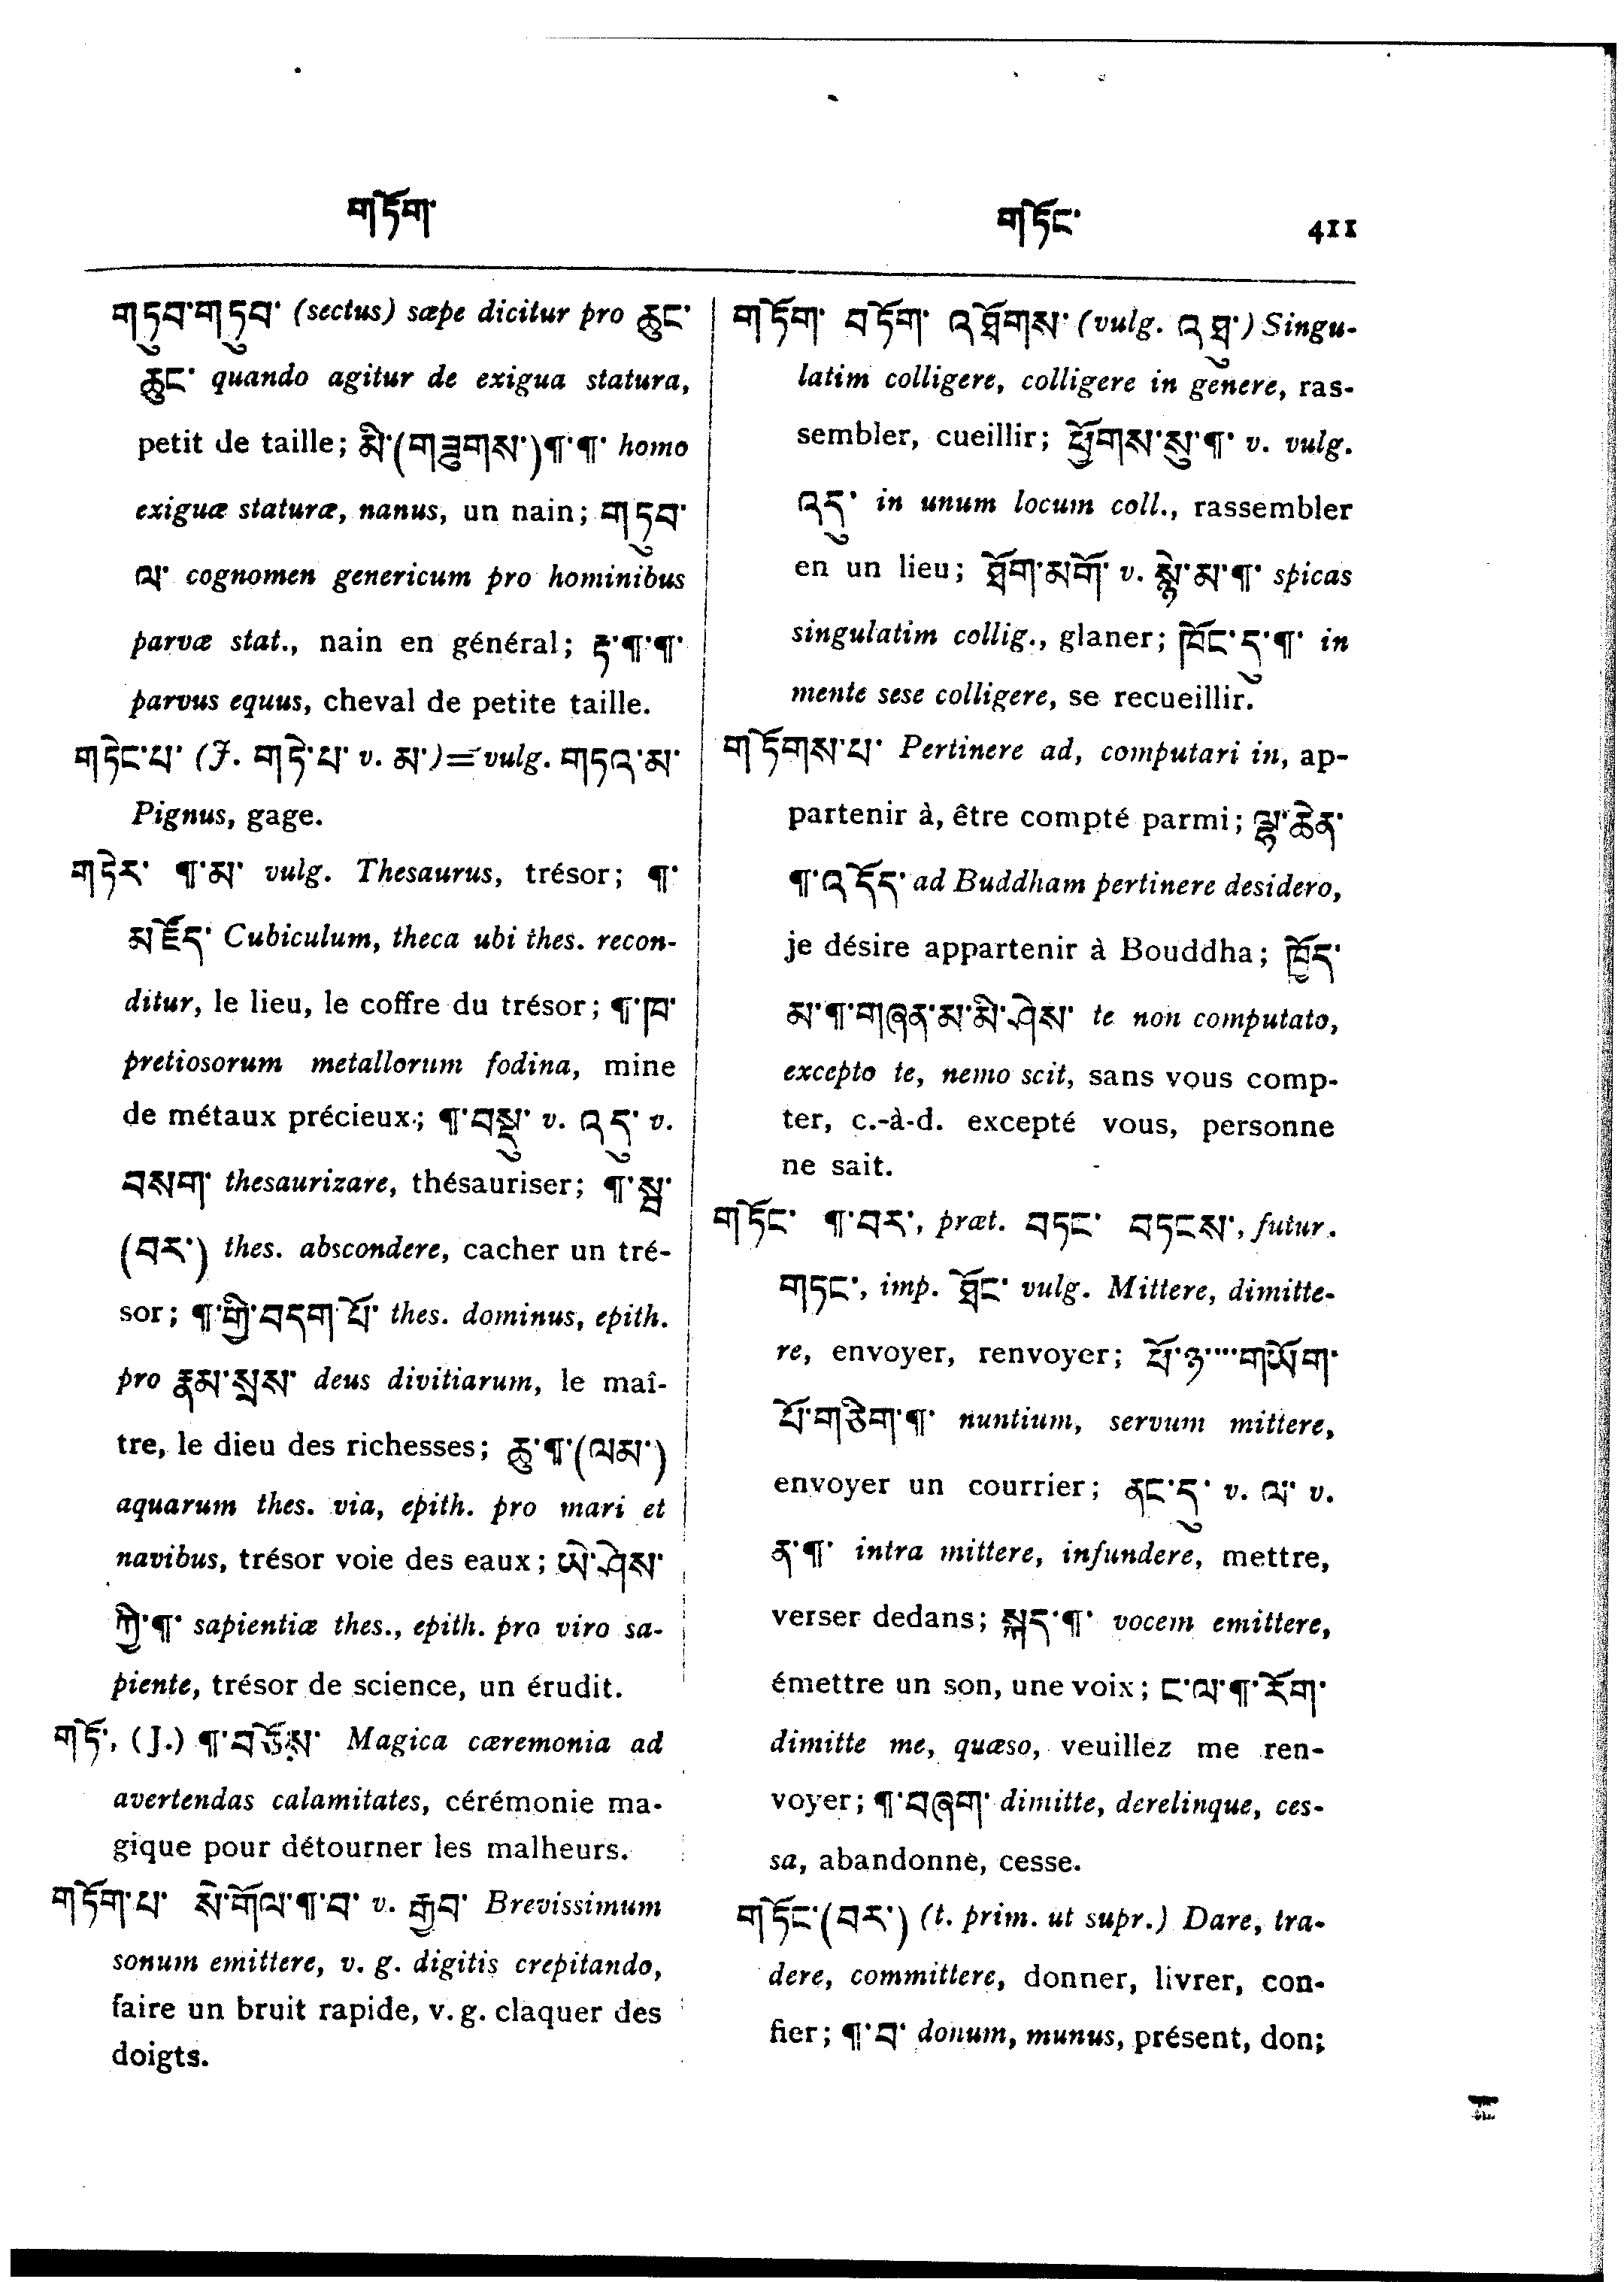 གཏོག་
གཏོང་ 411
གཏུབ་གཏུབ་ (sectus) sæpe dicitur pro ཆུང་
ཆུང་ quando agitur de exigua statura,
petit de taille; མི་(གཟུགས་)¶་¶་ homo
exiguæ staturæ, nanus, un nain; གཏུབ་
ལ་ cognomen genericum pro hominibus
parvæ stat., nain en général; རྟ་¶་¶་
parvus equus, cheval de petite taille.
གཏེང་པ་ (J. གཏེ་པ་ v. མ་)= vulg. གཏའ་མ་
Pignus, gage.
གཏེར་ ¶་མ་ vulg. Thesaurus, trésor; ¶་
མཛོད་ Cubiculum, theca ubi thes. recon-
ditur, le lieu, le coffre du trésor; ¶་ཁ་
pretiosorum metallorum fodina, mine
de métaux précieux; ¶་བསྡུ་ v. འདུ་ v.
བསག་ thesaurizare, thésauriser; ¶་སྦ་
(བར་) thes. abscondere, cacher un tré-
sor; ¶་གྱི་བདག་པོ་ thes. dominus, epith.
pro རྣམ་སྲས་ deus divitiarum, le maî-
tre, le dieu des richesses; ཆུ་¶་(ལམ་)
aquarum thes. via, epith. pro mari et
navibus, trésor voie des eaux; ཡེ་ཤེས་
ཀྱི་¶་ sapientiæ thes., epith. pro viro sa-
piente, trésor de science, un érudit.
གཏོ་, (J.) ¶་བཅོས་ Magica cæremonia ad
avertendas calamitates, cérémonie ma-
gique pour détourner les malheurs.
གཏོག་པ་ སེ་གོལ་¶་བ་ v. རྒྱབ་ Brevissimum
sonum emittere, v. g. digitis crepitando,
faire un bruit rapide, v. g. claquer des
doigts.
གཏོག་ བཏོག་ འཐོགས་ (vulg. འཐུ་) Singu-
latim colligere, colligere in genere, ras-
sembler, cueillir; ཕྱོགས་སུ་¶་ v. vulg.
འདུ་ in unum locum coll., rassembler
en un lieu; ཐོག་མགོ་ v. སྙེ་མ་¶་ spicas
singulatim collig., glaner; ཁོང་དུ་¶་ in
mente sese colligere, se recueillir.
གཏོགས་པ་ Pertinere ad, computari in, ap-
partenir à, être compté parmi; ལྷ་ཆེན་
¶་འདོད་ ad Buddham pertinere desidero,
je désire appartenir à Bouddha; ཁྱོད་
མ་¶་གཞན་མ་མི་ཤེས་ te non computato,
excepto te, nemo scit, sans vous comp-
ter, c.-à-d. excepté vous, personne
ne sait.
གཏོང་ ¶་བར་, præt. བཏང་ བཏངས་, futur.
གཏང་, imp. ཐོང་ vulg. Mittere, dimitte-
re, envoyer, renvoyer; ཕོ་ཉ་····གཡོག་
པོ་གཅིག་¶་ nuntium, servum mittere,
envoyer un courrier; ནང་དུ་ v. ལ་ v.
ན་¶་ intra mittere, infundere, mettre,
verser dedans; སྐད་¶་ vocem emittere,
émettre un son, une voix; ང་ལ་¶་རོག་
dimitte me, quæso, veuillez me ren-
voyer; ¶་བཞག་ dimitte, derelinque, ces-
sa, abandonne, cesse.
གཏོང་(བར་) (t. prim. ut supr.) Dare, tra-
dere, committere, donner, livrer, con-
fier; ¶་བ་ donum, munus, présent, don;